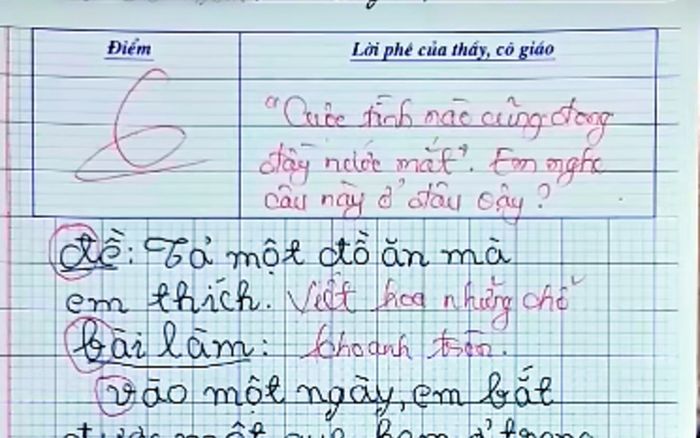 Điểm
Lời phê của thầy, cô giáo
6
"Cuộc tình nào cũng đong
đầy nước mắt". Em nghe
câu này ở đâu vậy?
đề: Tả một đồ ăn mà
em thích. Viết hoa những chỗ
bài làm: khoanh tròn.
vào một ngày, em bắt
được một quả